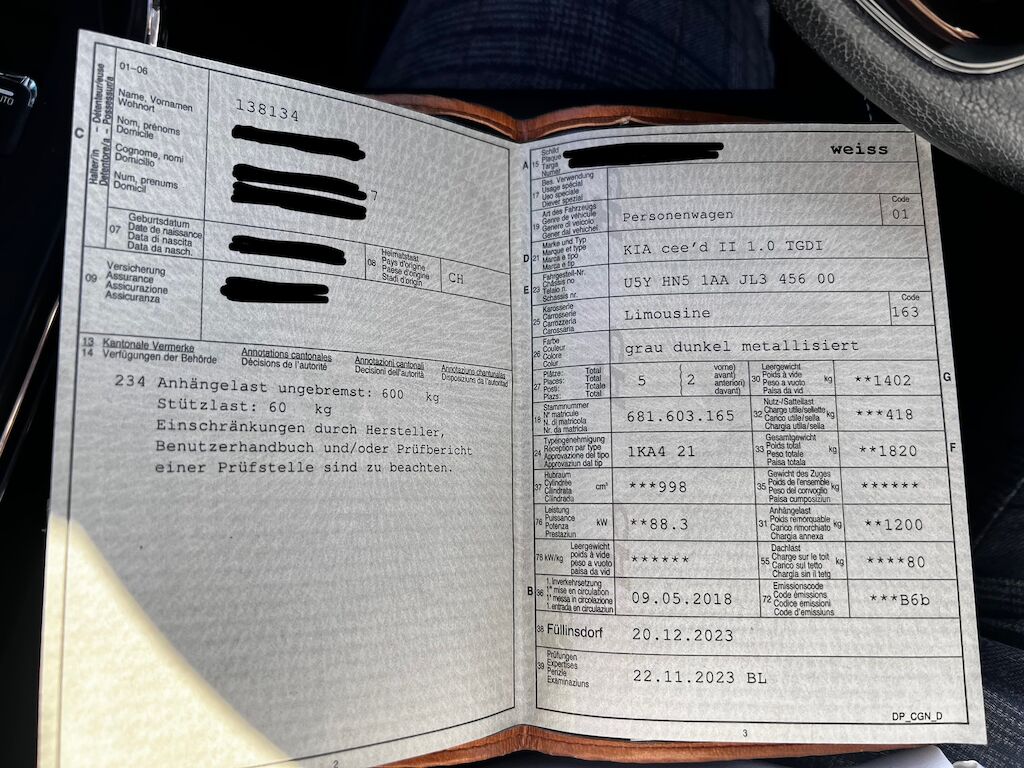 01–06
Halter/in – Détenteur/euse
Detentore/a – Possessur/a
C
Name, Vornamen
Wohnort
Nom, prénoms
Domicile
Cognome, nomi
Domicilio
Num, prenums
Domicil
138134
7
07
Geburtsdatum
Date de naissance
Data di nascita
Data da nasch.
08
Heimatstaat
Pays d'origine
Paese d'origine
Stadi d'origin
CH
09
Versicherung
Assurance
Assicurazione
Assicuranza
13 Kantonale Vermerke
14 Verfügungen der Behörde
Annotations cantonales
Décisions de l'autorité
Annotazioni cantonali
Decisioni dell'autorità
Annotaziuns chantunalas
Disposiziuns da l'autoritad
234 Anhängelast ungebremst: 600 kg
Stützlast: 60 kg
Einschränkungen durch Hersteller,
Benutzerhandbuch und/oder Prüfbericht
einer Prüfstelle sind zu beachten.
2
A 15
Schild
Plaque
Targa
Numer
weiss
17
Bes. Verwendung
Usage spécial
Uso speciale
Diever spezial
19
Art des Fahrzeugs
Genre de véhicule
Genere di veicolo
Gener dal vehichel
Personenwagen
Code
01
D 21
Marke und Typ
Marque et type
Marca e tipo
Marca e tip
KIA cee'd II 1.0 TGDI
E 23
Fahrgestell-Nr.
Châssis no
Telaio n.
Schassis nr.
U5Y HN5 1AA JL3 456 00
25
Karosserie
Carrosserie
Carrozzeria
Carossaria
Limousine
Code
163
26
Farbe
Couleur
Colore
Colur
grau dunkel metallisiert
27
Plätze: Total
Places: Total
Posti: Totale
Plazs: Total
5 (2
vorne)
avant)
anteriori)
davant)
30
Leergewicht
Poids à vide
Peso a vuoto
Paisa da vid
kg
**1402
G
18
Stammnummer
N° matricule
N. di matricola
Nr. da matricla
681.603.165
32
Nutz-/Sattellast
Charge utile/sellette
Carico utile/sella
Chargia utila/sella
kg
***418
24
Typengenehmigung
Réception par type
Approvazione del tipo
Approvaziun dal tip
1KA4 21
33
Gesamtgewicht
Poids total
Peso totale
Paisa totala
kg
**1820
F
37
Hubraum
Cylindrée
Cilindrata
Cilindrada
cm³
***998
35
Gewicht des Zuges
Poids de l'ensemble
Peso del convoglio
Paisa cumposiziun
kg
******
76
Leistung
Puissance
Potenza
Prestaziun
kW
**88.3
31
Anhängelast
Poids remorquable
Carico rimorchiato
Chargia annexa
kg
**1200
78 kW/kg
Leergewicht
poids à vuoto
peso a vuoto
paisa da vid
******
55
Dachlast
Charge sur le toit
Carico sul tetto
Chargia sin il tetg
kg
****80
B 36
1. Inverkehrsetzung
1re mise en circulation
1a messa in circolazione
1. entrada en circulaziun
09.05.2018
72
Emissionscode
Code émissions
Codice emissioni
Code d'emissiuns
***B6b
38 Füllinsdorf 20.12.2023
39
Prüfungen
Expertises
Perizie
Examinaziuns
22.11.2023 BL
DP_CGN_D
3